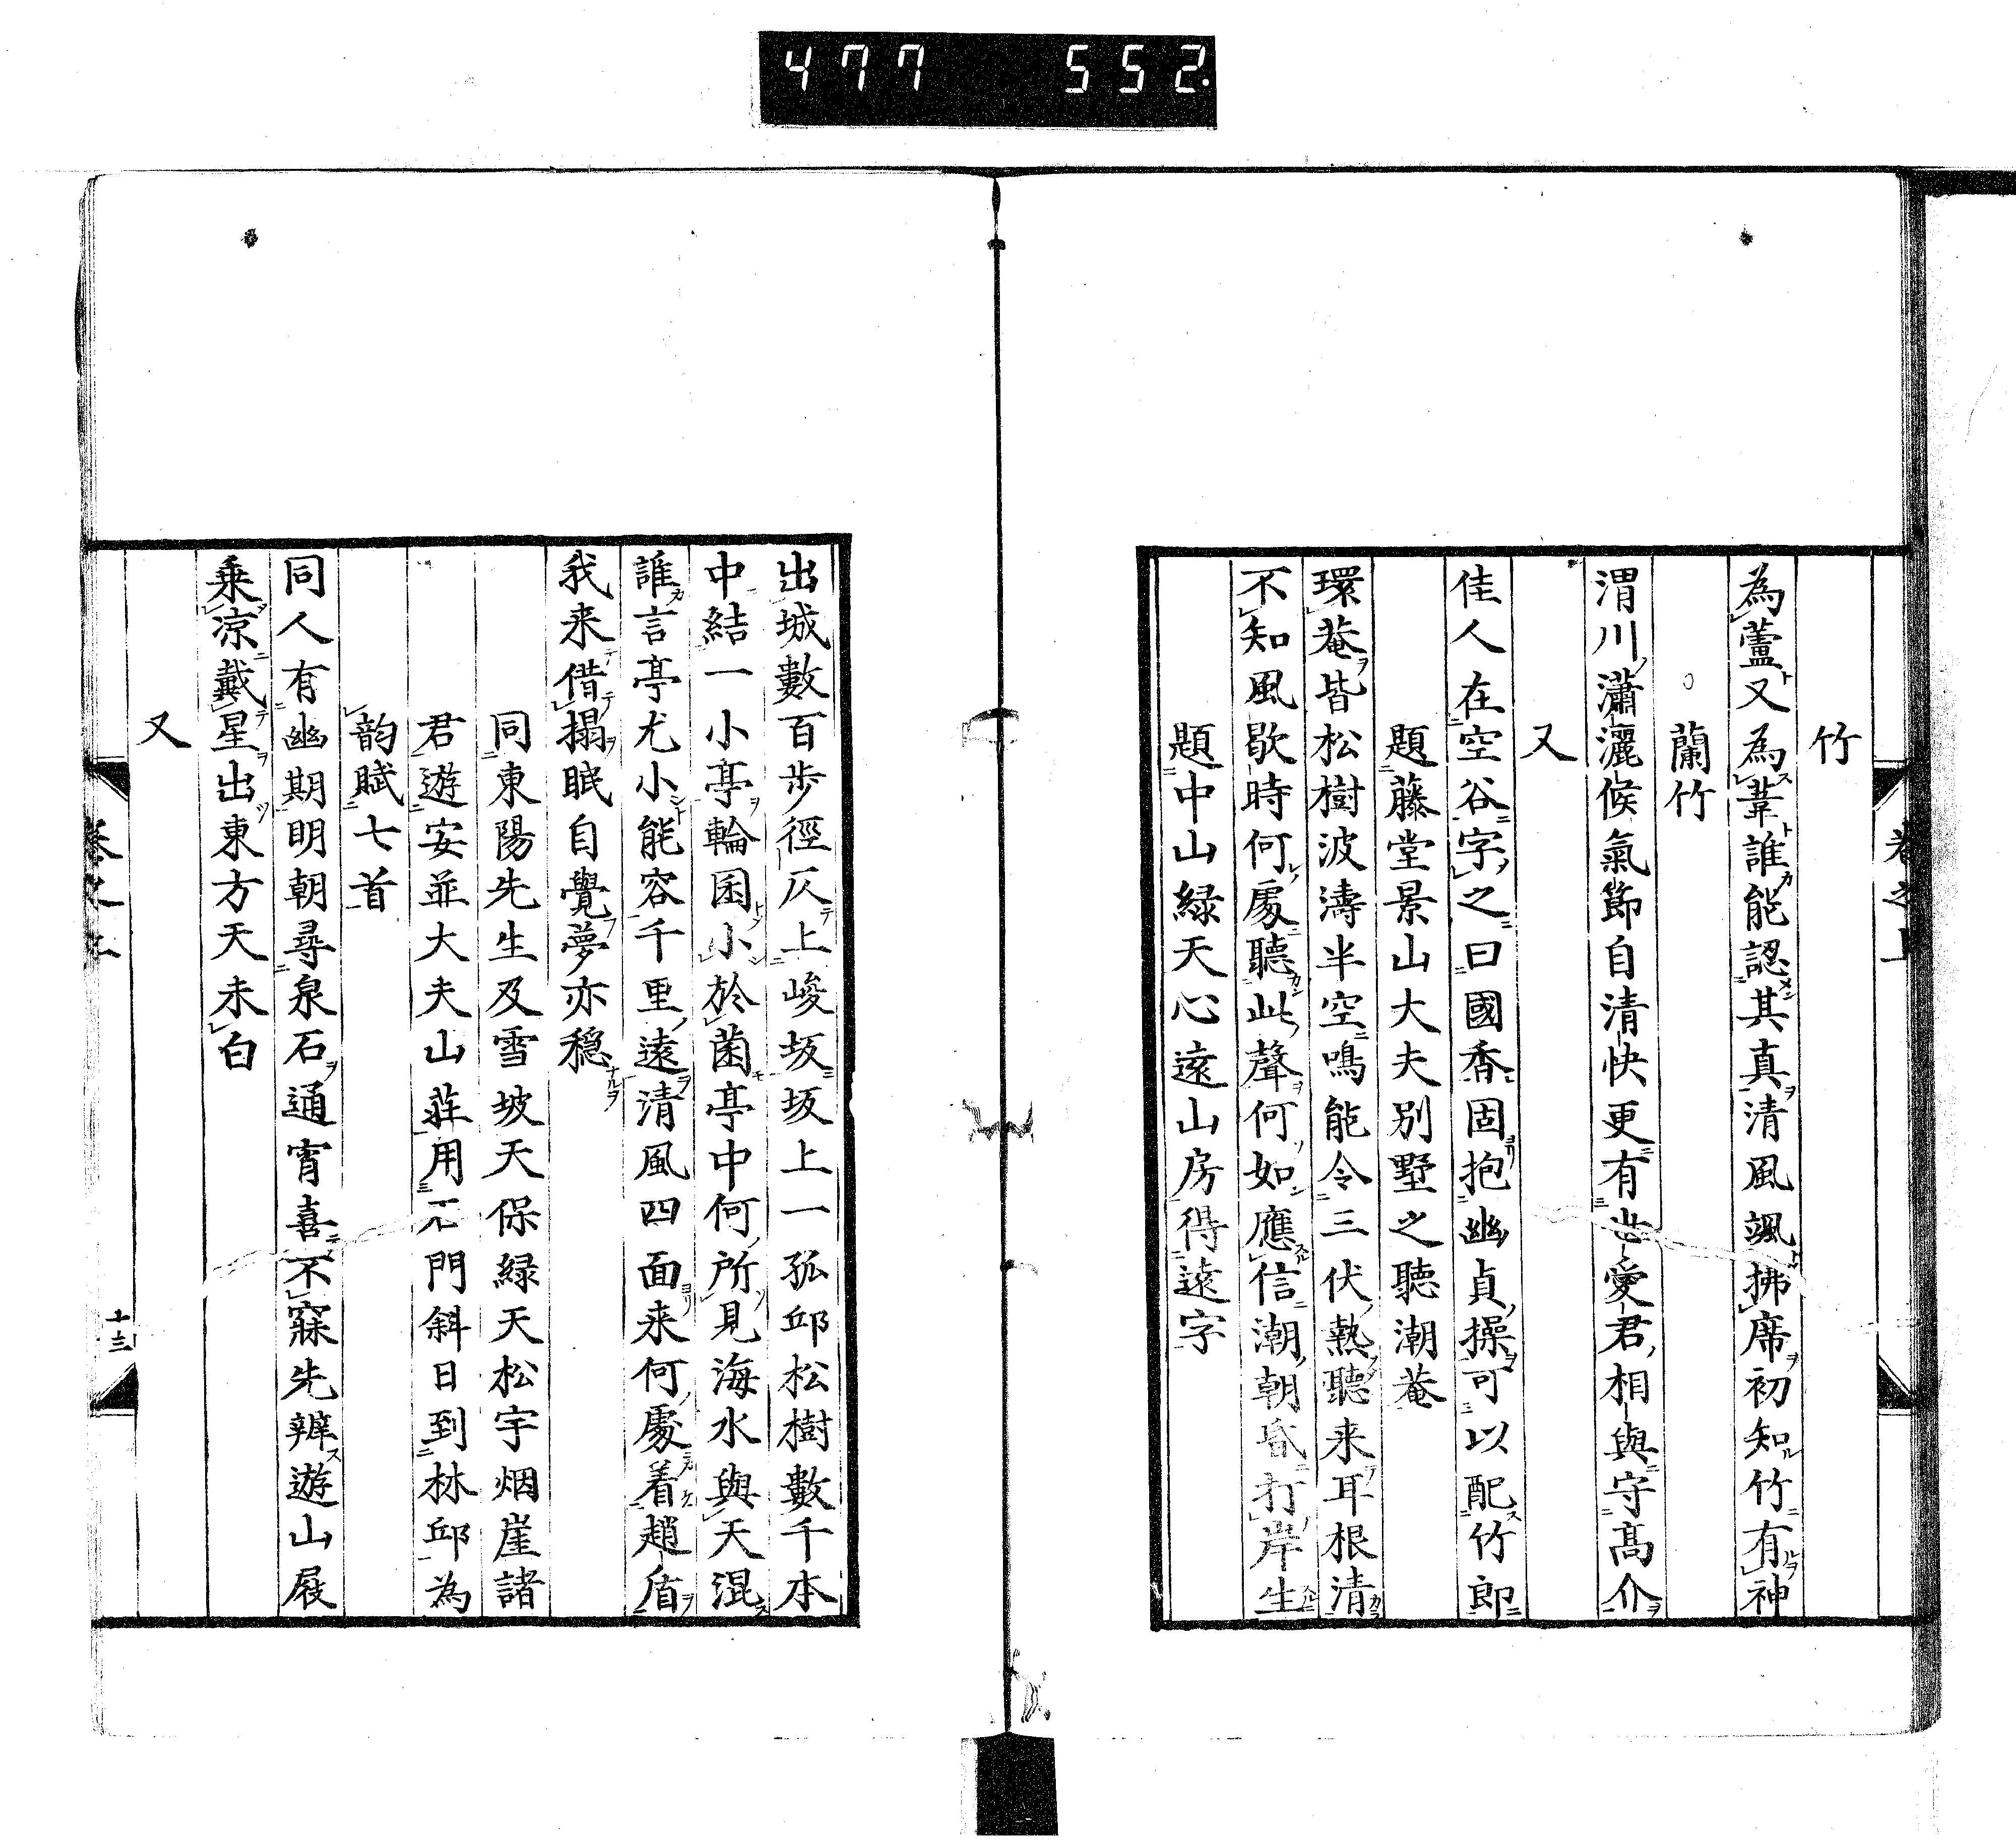 477 552.
卷之上
竹
為蘆又為葦誰能認其真清風颯拂席初知竹有神
蘭竹
渭川瀟灑候氣節自清快更有世愛君相與守髙介
又
佳人在空谷字之曰國香固抱幽貞操可以配竹郎
題藤堂景山大夫別墅之聽潮菴
環菴皆松樹波濤半空鳴能令三伏熱聽来耳根清
不知風歇時何處聽此聲何如應信潮朝昏打岸生
題中山緑天心遠山房得遠字
出城數百歩徑仄上峻坂坂上一孤邱松樹數千本
中結一小亭輪囷小於菌亭中何所見海水與天混
誰言亭尤小能容千里遠清風四面来何處着趙盾
我来借搨眠自覺夢亦穏
同東陽先生及雪坡天保緑天松宇烟崖諸
君遊安並大夫山莊用石門斜日到林邱為
韵賦七首
同人有幽期明朝尋泉石通宵喜不寐先辨遊山屐
乗凉戴星出東方天未白
又
卷之上
十三